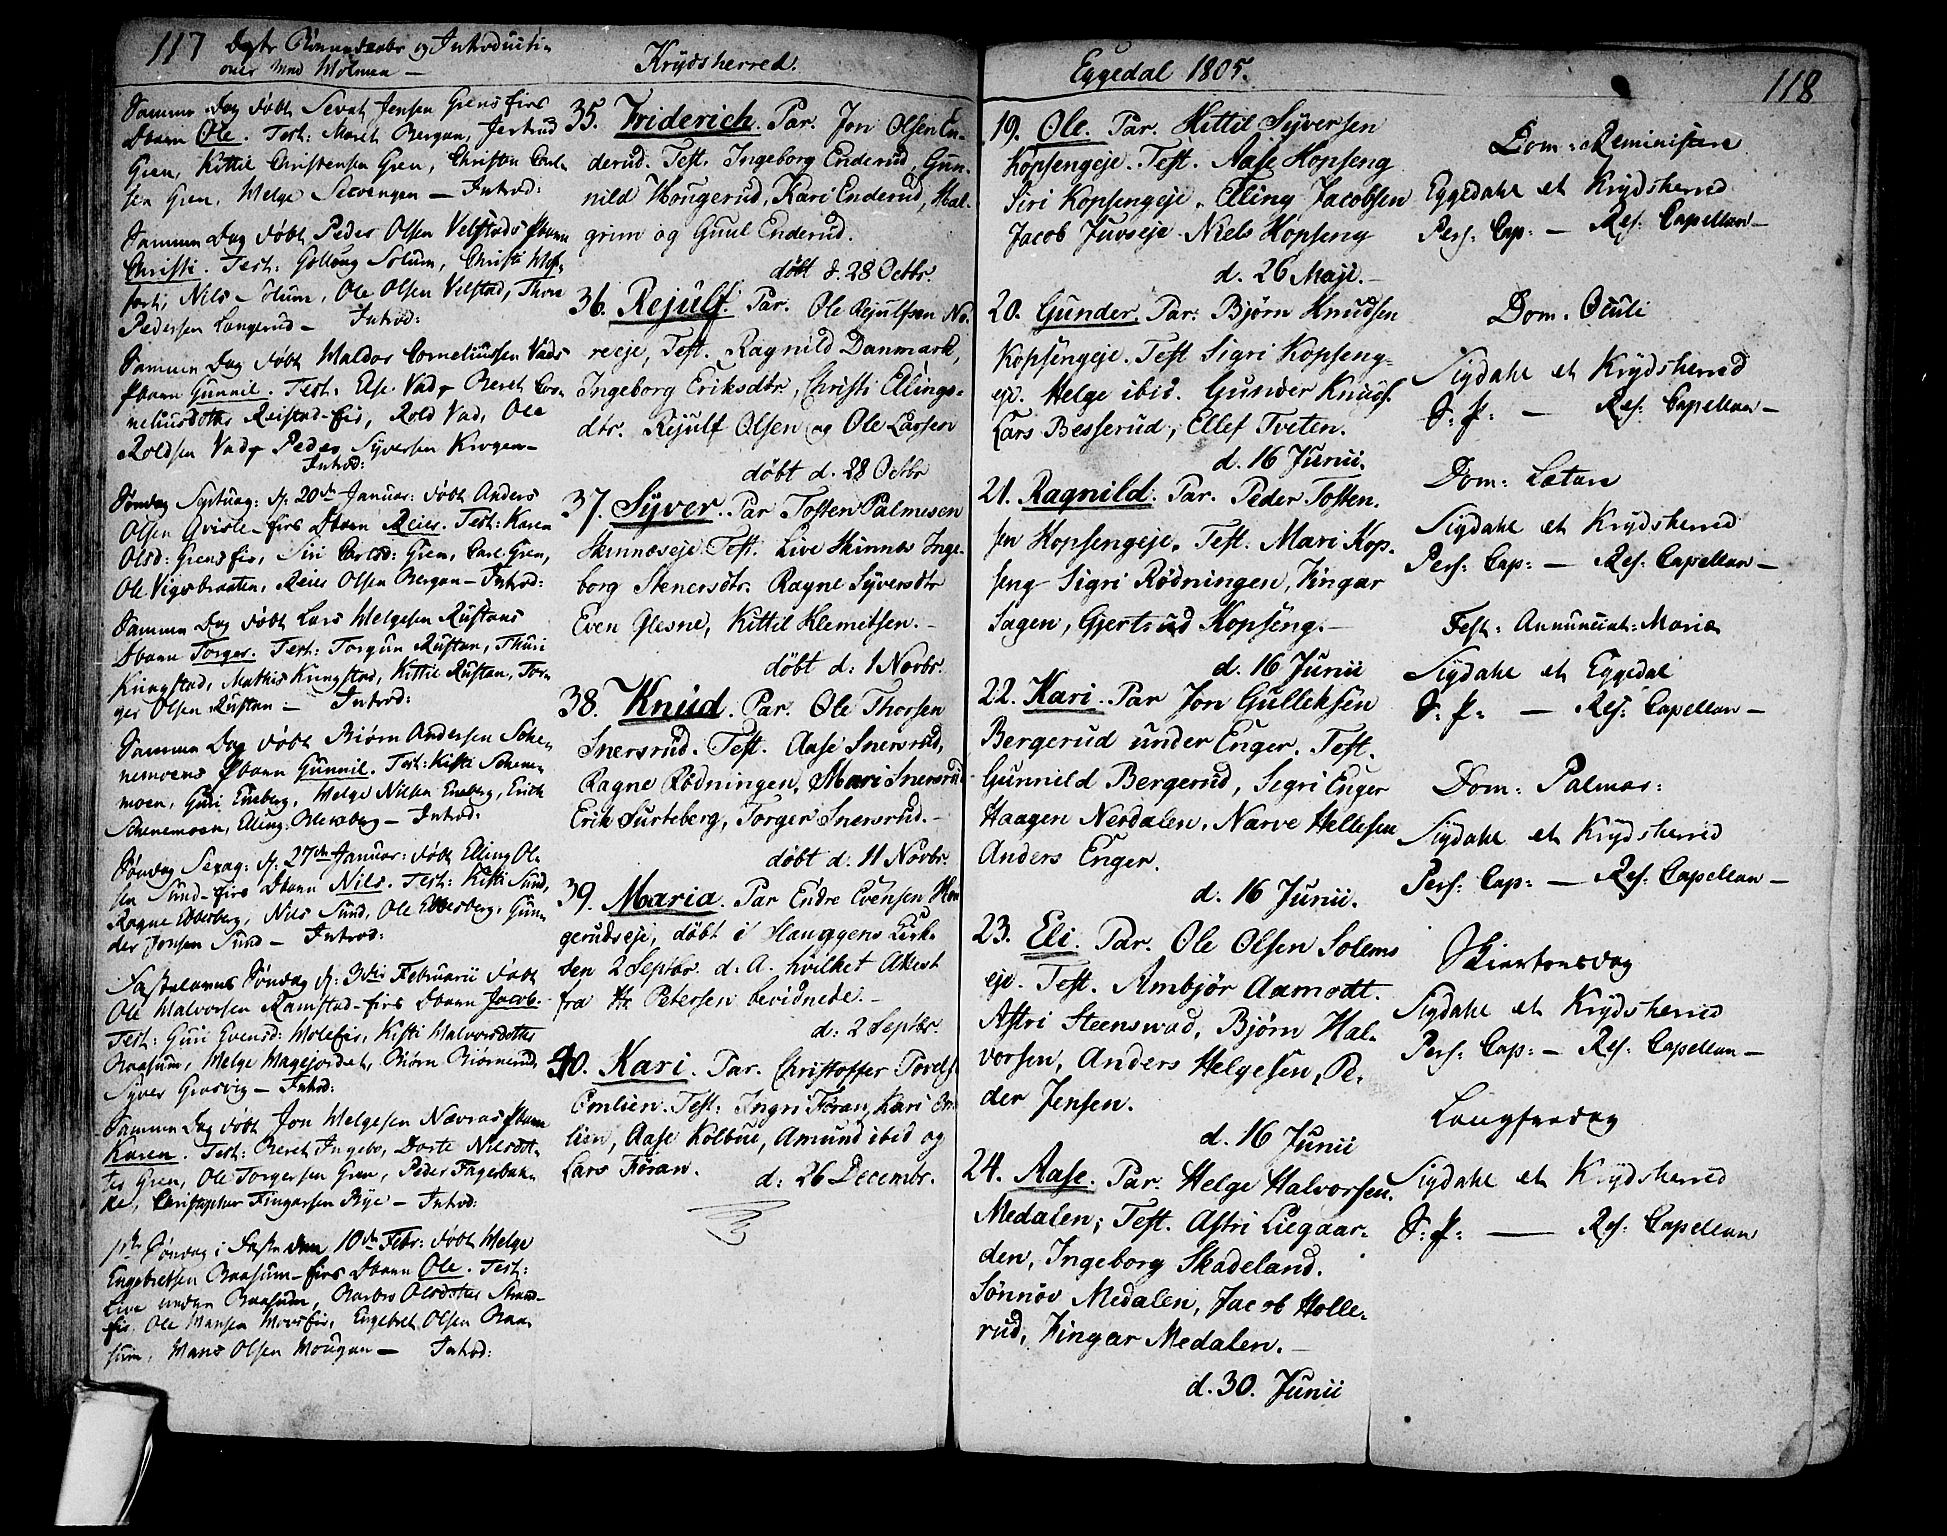 117
Krydsherred.
Samme Dag døbt Sevat Jensen Grensfirs
Dbarn Ole. Test: Marit Bergan, Jertrud
Gren, Kittil Christensen Gren, Christen Carl-
sen Gren, Helge — Introd:
Samme Dag døbt Peder Olsen Velstads Pbarn
Christi. Test: Golloug Solum, Christi
Nils Solum, Ole Olsen Velstad, Thore
Pedersen Langerud — Introd:
Samme Dag døbt Haldor Corneliussen Vads
Pbarn Gunnil. Test: Else Vad, Beret Cor-
neliusdotter Reistad-fir, Rold Vad, Ole
Roldsen Vad, Peder Syversen Krogen —
Introd:
Søndag Septuag: d. 20de Januar: døbt Anders
Olsen firs Dbarn Reier. Test: Karen
Olsd: Grensfir, Siri Carlsd: Gren, Carl Gren,
Ole Vigsbraaten, Reier Olsen Bergan — Introd:
Samme Dag døbt Lars Helgesen Rustans
Dbarn Torger. Test: Torgun Rustan, Thuri
Kringstad, Mathis Kringstad, Kittil Rustan, Tor-
ger Olsen Rustan — Introd:
Samme Dag døbt Biørn Andersen Skene-
moens Pbarn Gunnil. Test: Kisti Skene-
moen, Guri Eneberg, Helge Nilsen Eneberg, Erick
Skenemoen, Elling — Introd:
Søndag Sexag: d. 27de Januar: døbt Elling Ol-
sen Sund-firs Dbarn Nils. Test: Kisti Sund,
Ragne Ebberberg, Nils Sund, Ole Gun-
der Jonsen Sund — Introd:
Fastelavns Søndag d. 3die Februarii døbt
Ole Halvorsen Ramstad-firs Dbarn Jacob.
Test: Guri Evensd: Molefir, Kisti Halvorsdotter
Raasum, Helge Hagejordet, Biørn Biørnerud,
Syver Grosvig — Introd:
Samme Dag døbt Jon Helgesen Pbarn
Karen. Test: Beret Dorte Nilsdot-
ter Gren, Ole Torgersen Gren, Peder Fagerbak-
ke, Christopher Fingarsen Rye — Introd:
Søndag i Faste den 10de Febr: døbt Helge
Engebretsen Raasum-firs Dbarn Ole. Test:
Live under Raasum, Barbro Olsdotter
Ole Hansen Engebret Olsen Raa-
sum, Hans Olsen Hougan — Introd:
35. Friderich. Par. Jon Olsen En-
derud. Test. Ingeborg Enderud, Gun-
nild Hougerud, Kari Enderud, Hal-
grim og Guul Enderud.
døbt d. 28 Octbr.
36. Rejulf. Par. Ole Rejulfsen No-
reeje, Test. Ragnild Danmark,
Ingeborg Eriksdtr, Christi Ellings-
dtr. Rejulf Olsen og Ole Larsen
døbt d. 28 Octbr
37. Syver. Par Tosten Palmesen
Skinneseje Test. Live Skinnes Inge-
borg Stenersdtr. Ragne Syversdtr
Even Glesne, Kittil Klemitsen. —
døbt d: 1 Novbr.
38. Knud. Par. Ole Thorsen
Snersrud. Test. Aase Snersrud,
Ragne Rødningen, Mari Snersrud
Erik Surteberg, Torger Snersrud. —
døbt d: 11 Novbr.
39. Maria. Par Endre Evensen Hou
gerudseje, døbt i Hauggens Kirk-
den 2 Septbr. d. A. hvilket Attest
fra Hr Petersen bevidnede. —
d: 2 Septbr.
40. Kari. Par. Christoffer Torels
Omlien. Test: Ingri Føran, Kari Om
lien, Aase Kolbue, Amund ibid og
Lars Føran.
d: 26 Decembr.
Eggedal 1805.
118
19. Ole. Par. Kittil Syversen
Kopsengeje. Test. Aase Kopseng
Siri Kopsengeje. Elling Jacobsen
Jacob Juvseje. Niels Kopseng
d. 26 Maji. —
20. Gunder. Par: Bjørn Knudsen
Kopsengeje. Test Sigri Kopseng-
eje. Helge ibid. Gunder Knuds.
Lars Besserud, Ellef Tveten.
d. 16 Junii.
21. Ragnild. Par. Peder Tosten-
sen Kopsengeje. Test. Mari Kop-
seng Sigri Rødningen, Fingar
Sagen, Gjertrud Kopseng. —
d. 16 Junii
22. Kari. Par Jon Gulleksen
Bergerud under Enger. Test.
Gunnild Bergerud, Sigri Enger
Haagen Nerdalen, Narve Hellesen
Anders Enger.
d. 16 Junii.
23. Eli. Par. Ole Olsen Solems
eje. Test. Ambjør Aamodt.
Astri Steenswad, Bjørn Hal-
vorsen, Anders Helgesen, Pe-
der Jensen.
d. 16 Junii
24. Aase. Par. Helge Halvorsen.
Medalen; Test. Astri Liegaar-
den, Ingeborg Skadeland.
Sønnøv Medalen, Jacob Holle-
rud, Fingar Medalen. —
d. 30. Junii
Dom: Reminiscere
Eggedahl et Krydsherred
Pers: Cap: — Res: Capellan —
Dom. Oculi
Sigdahl et Krydsherred
S: P: — Res: Capellan —
Dom: Lætare
Sigdahl et Krydsherred
Pers: Cap: — Res: Capellan —
Fest: Annunciat: Mariæ
Sigdahl et Eggedal
S: P: — Res: Capellan —
Dom: Palmar:
Sigdahl et Krydsherred
Pers: Cap: — Res: Capellan —
Skiertorsdag
Sigdahl et Krydsherred
Pers: Cap: — Res: Capellan —
Langfredag
Sigdahl et Krydsherred
S: P: — Res: Capellan